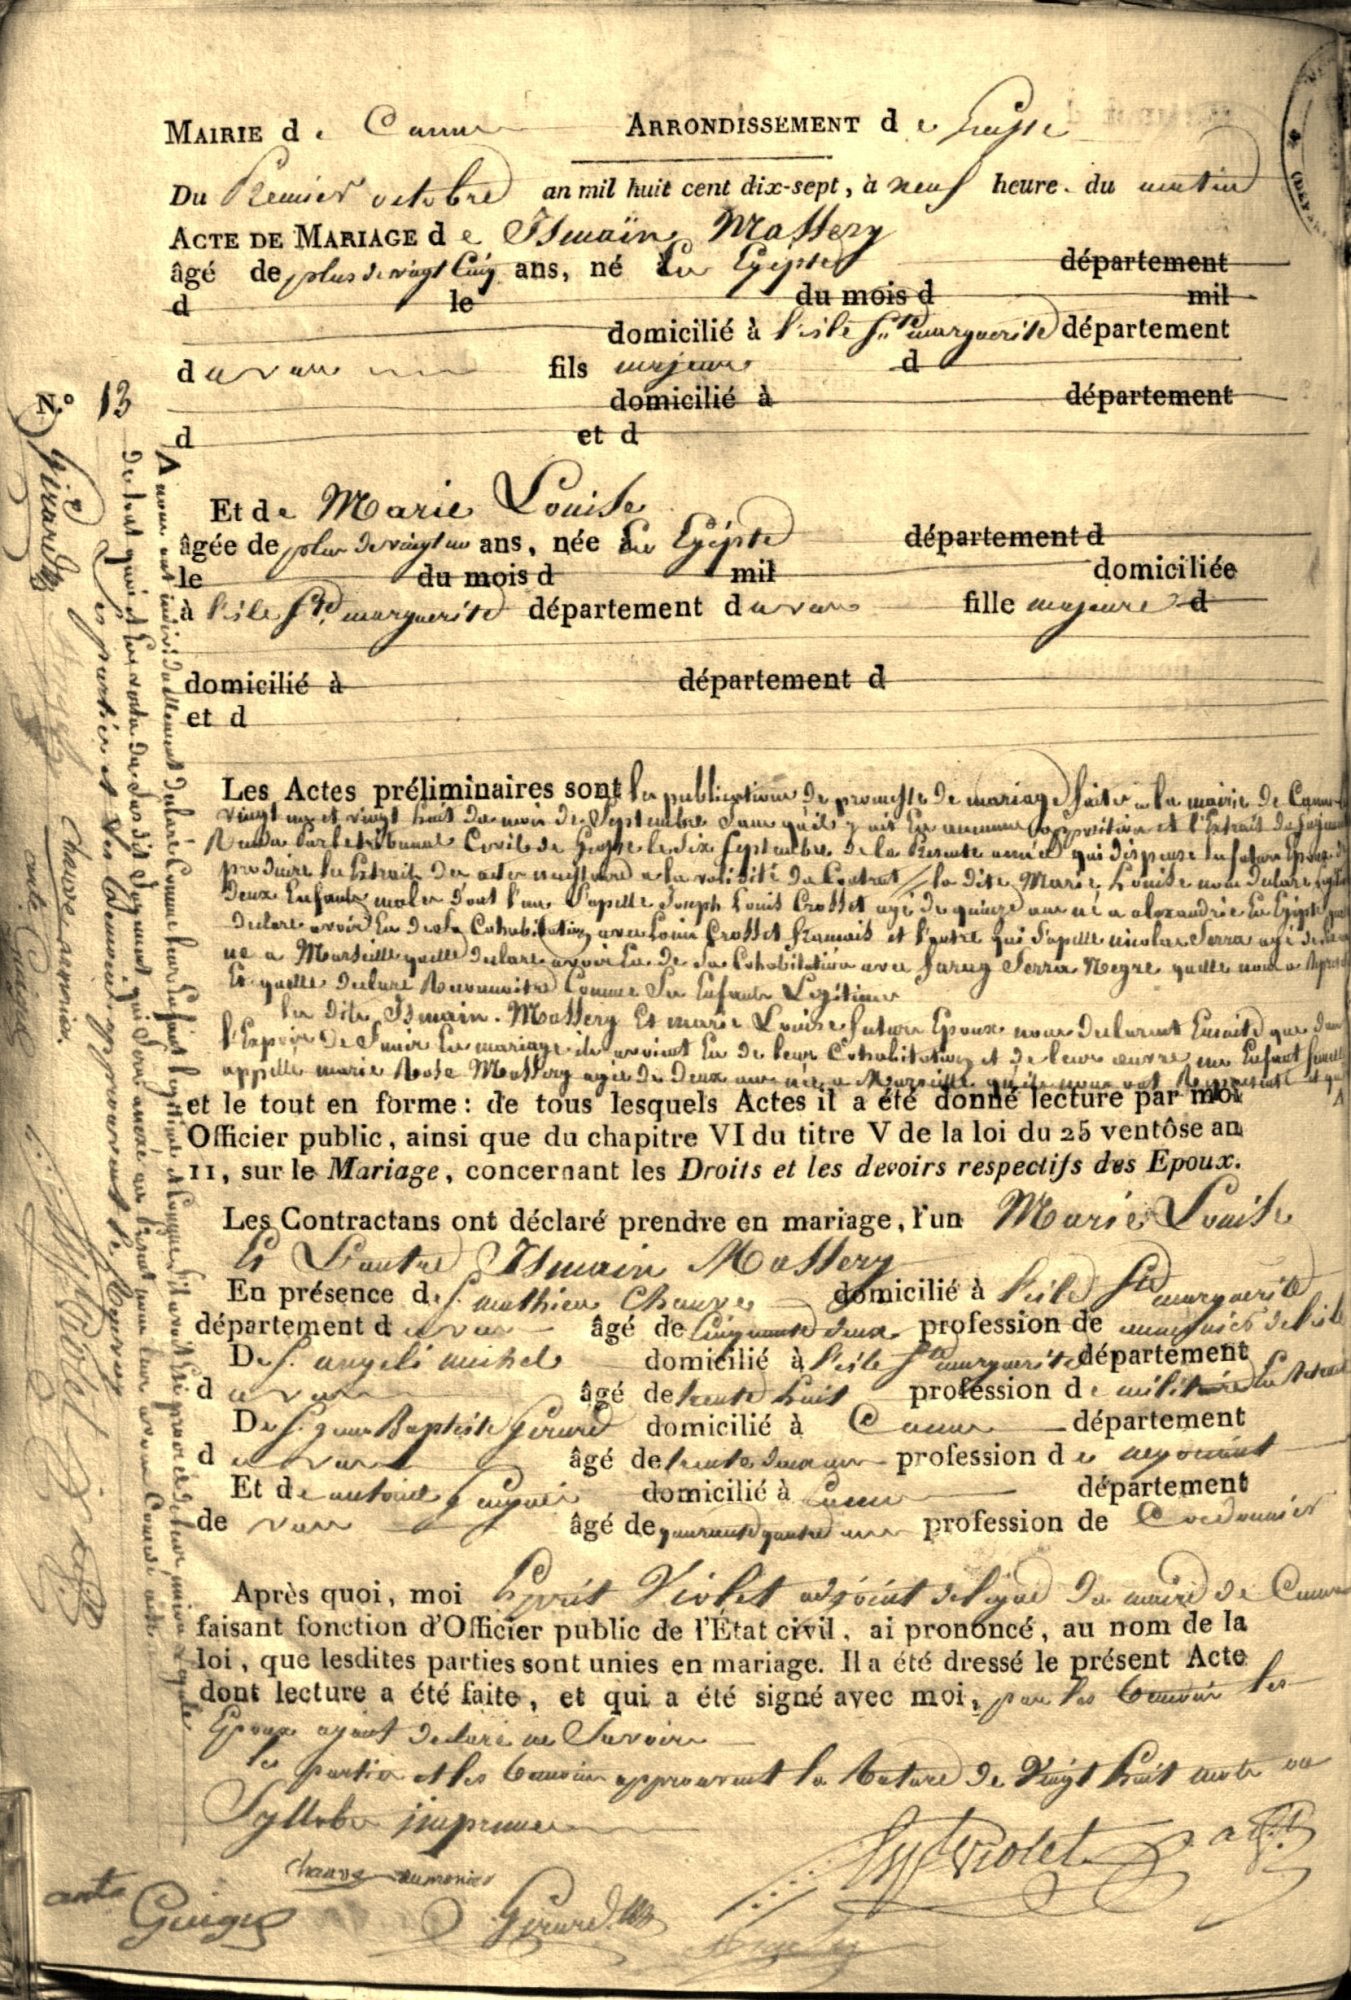 MAIRIE de Canne ARRONDISSEMENT de Grasse
Du Premier octobre an mil huit cent dix-sept, à neuf heure. du matin
ACTE DE MARIAGE de Ismaïn Massery
âgé de plus de vingt Cinq ans, né En Egipte département
d le du mois d mil
domicilié à l'isle Ste marguerite département
d u var fils majeur d
domicilié à département
d et d
N.o 13
Et de Marie Louise
âgée de plus de vingt un ans, née à En Egipte département d
le du mois d mil domiciliée
à l'isle Ste marguerite département du var fille majeure d
domicilié à département d
et d
Les Actes préliminaires sont les publications de promesse de mariage faites a la mairie de Canne
vingt un et vingt huit du mois de Septembre Sans qu'il y ait Eu aucune opposition et l'Extrait du Jugement
Rendu Par le tribunal Civil de Grasse le dix Septembre de la Presente année qui dispense les futurs Epoux de
produire les Extrait des actes la validité du Contrat la dite Marie Louise nous declare
deux Enfants males dont l'un S'apelle Joseph Louis Crosset agé de quinze ans né a alexandrie En Egipte
declare avoir Eu de Sa Cohabitation avec Louis Crosset francais et l'autre qui S'apelle nicolas Serra agé de
né a Marseille quelle declare avoir Eu de Sa Cohabitation avec Serra Negre quelle nous a
Et quelle declare Reconnoitre Comme Ses Enfants Legitimes
les dits Ismain Massery Et marie Louise futurs Epoux nous declarent Ensuite que dans
l'Espoir de S'unir En mariage ils avoient Eu de leur Cohabitation et de leur œuvre un Enfant femelle
appellé marie Rose Massery agée de deux ans née a Marseille qu'ils nous ont Representé et
et le tout en forme: de tous lesquels Actes il a été donné lecture par moi
Officier public, ainsi que du chapitre VI du titre V de la loi du 25 ventôse an
11, sur le Mariage, concernant les Droits et les devoirs respectifs des Epoux.
Les Contractans ont déclaré prendre en mariage, l'un Marie Louise
Et L'autre Ismain Massery
En présence de S. mathieu Chauve domicilié à l'isle Ste marguerite
département du var âgé de Cinquante deux profession de aumonier de l'isle
De S. angeli michel domicilié à l'isle Ste marguerite département
du var âgé de trente huit profession de militaire En Retraite
De S. jean Baptiste Girard domicilié à Canne département
du var âgé de trente deux ans profession de negociant
Et de antoine Guigue domicilié à Canne département
de var âgé de quarante quatre ans profession de Cordonnier
Après quoi, moi Esprit Violet adjoint delegué du maire de Canne
faisant fonction d'Officier public de l'État civil, ai prononcé, au nom de la
loi, que lesdites parties sont unies en mariage. Il a été dressé le présent Acte
dont lecture a été faite, et qui a été signé avec moi, par les temoin les
Epoux ayant declaré ne Savoir
les parties et les temoin approuvent la Rature de Vingt huit mots ou
Syllabes imprimées
Esp Violet adjt
chauve aumonier
ante Guigue
Girard
A nous ont individuellement declaré Comme leur Enfant legitime
les parties et les temoins approuvent le Renvoy
Girard
chauve aumonier
ante Guigue
Violet